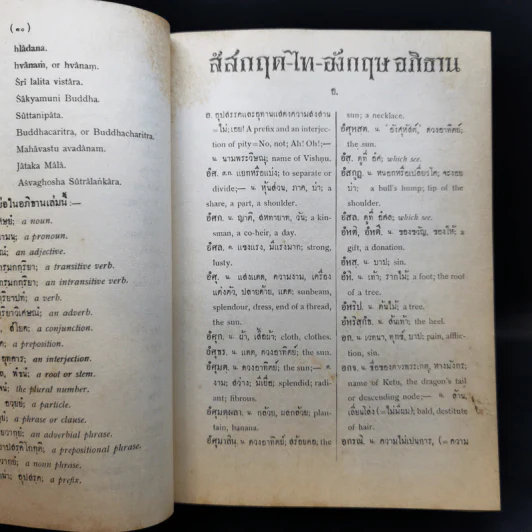 (๓๐)
hlādana.
hvānaṁ, or hvānaṃ.
Śri lalita vistāra.
Śākyamuni Buddha.
Sûttanipâta.
Buddhacaritra, or Buddhacharitra.
Mahāvastu avadānam.
Jātaka Mālā.
Aśvaghosha Sûtrālaṅkāra.
ย่อในอภิธานเล่มนี้ :—
a noun.
a pronoun.
an adjective.
a transitive verb.
an intransitive verb.
a verb.
an adverb.
a conjunction.
a preposition.
an interjection.
a root or stem.
the plural number.
a particle.
a phrase or clause.
an adverbial phrase.
a prepositional phrase.
a noun phrase.
อุปสรค; a prefix.
สํสกฤต-ไท-อังกฤษ อภิธาน
อ.
อ. อุปสรรคและอุทานแสดงความสงสาร
=ไม่; เออ! A prefix and an interjec-
tion of pity =No, not; Ah! Oh!;—
น นามพระวิษณุ; name of Vishṇu.
อํศ. ก.ก แยกหรือแบ่ง; to separate or
divide;— น หุ้นส่วน, ภาค, บ่า; a
share, a part, a shoulder.
อํศก. น ญาติ, สหทายาท, วัน; a kin-
man, a co-heir, a day.
อํศล. น แขงแรง, มีแรงมาก; strong,
lusty.
อํศุ. น แสงแดด, ความงาม, เครื่อง
แต่งตัว, ปลายด้าย, แดด; sunbeam,
splendour, dress, end of a thread,
the sun.
อํศุก. น ผ้า, เสื้อผ้า; cloth, clothes.
อํศุธร. น แดด, ดวงอาทิตย์; the sun.
อํศุมต. น ดวงอาทิตย์;— ค
งาม, สว่าง; มีเยื่อ; splendid; radi-
ant; fibrous.
อํศุมตผลา. น กล้วย, ผลกล้วย; plan-
tain, banana.
อํศุมาลิน. น ดวงอาทิตย์; สร้อยคอ; the
sun; a necklace.
อํศุหสต. น 'อังศุหัสต์,' ดวงอาทิตย์;
the sun.
อํส. ดูที่ อํศ; which see.
อํสกูฏ. น หนอกหรือเปลี่ยวโค; จะงอย
บ่า; a bull's hump; tip of the
shoulder.
อํสล. ดูที่ อํศล; which see.
อํหติ, อํหตี. น ของขวัญ, ของให้; a
gift, a donation.
อํหสฺ. น บาป; sin.
อํหิ. น เท้า; รากไม้; a foot; the root
of a tree.
อํหริป. น ต้นไม้; a tree.
อํหริสกํธ. น ส้นเท้า; the heel.
อก. น เวทนา, ทุกข์, บาป; pain, afflic-
tion, sin.
อกจ. น ชื่อของดาวพระเกตุ, หางมังกร;
name of Ketu, the dragon's tail
or descending node;— ค ล้าน,
เลี่ยนโล่ง (=ไม่มีผม); bald, destitute
of hair.
อกรณิ. น ความไม่เป็นการ, (=ความ